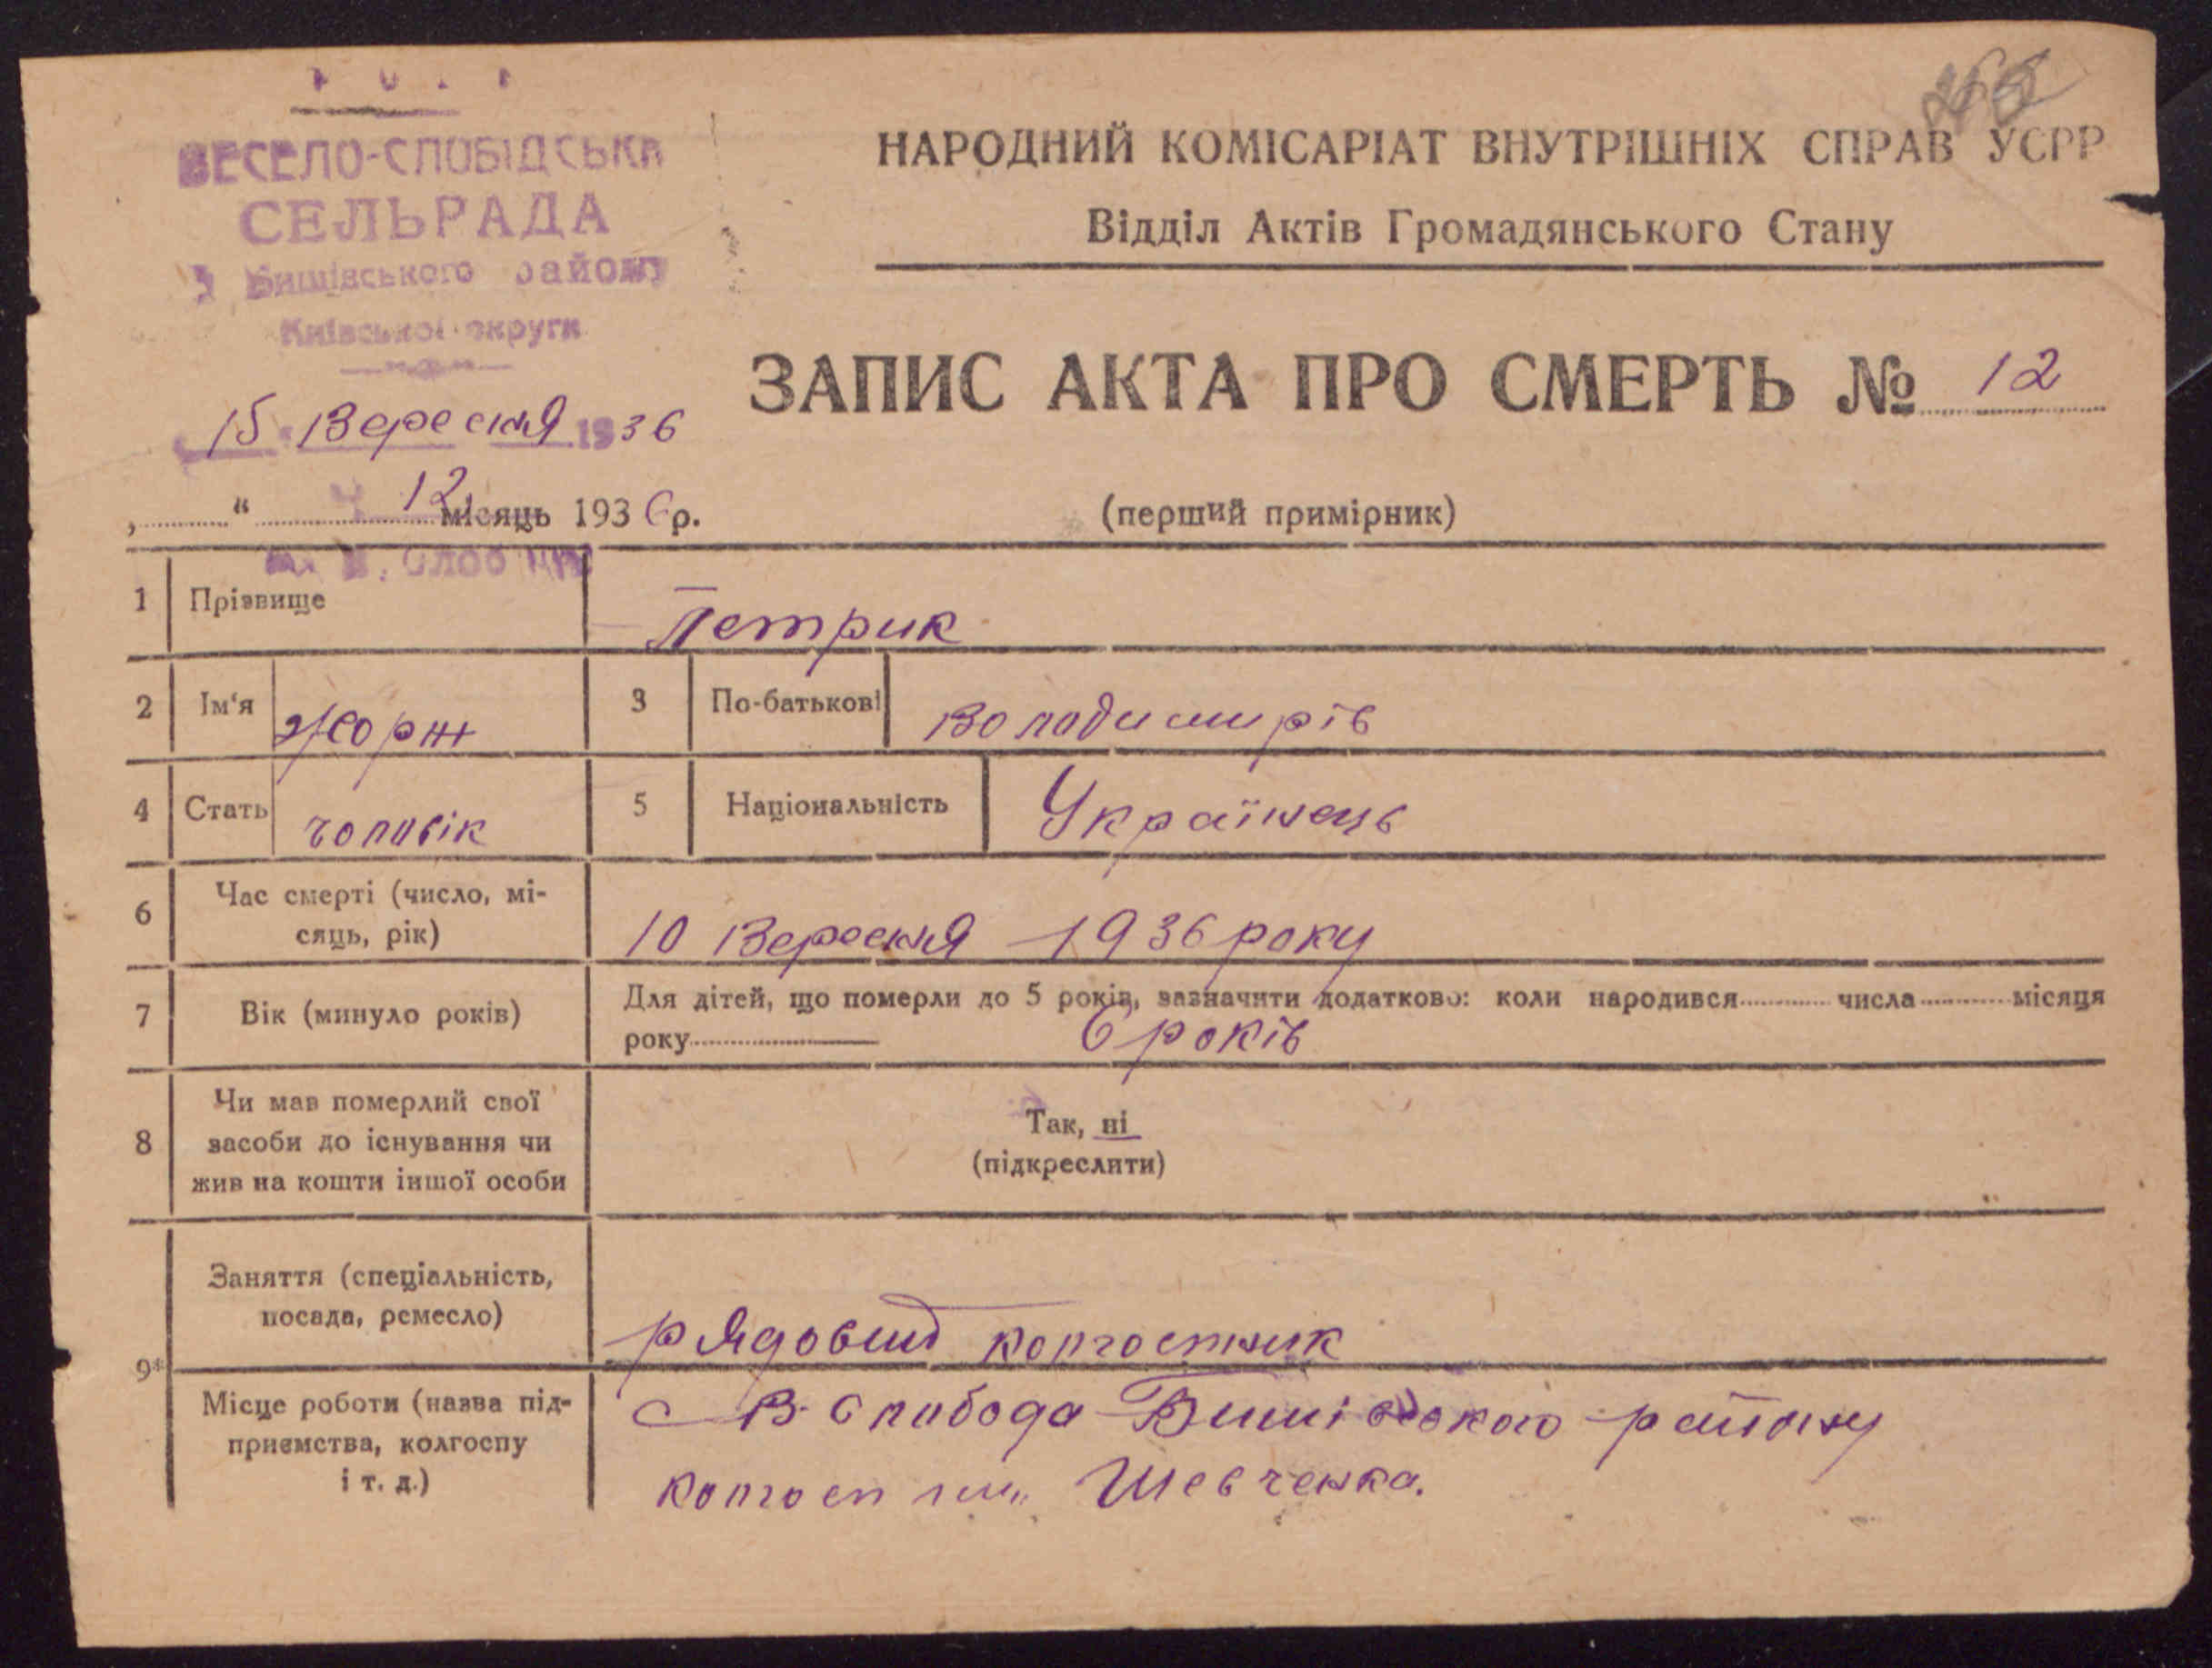 ВЕСЕЛО-СЛОБІДСЬКА
СЕЛЬРАДА
району
Київської округи
НАРОДНИЙ КОМІСАРІАТ ВНУТРІШНІХ СПРАВ УСРР
Відділ Актів Громадянського Стану
15 Вересня 1936
ЗАПИС АКТА ПРО СМЕРТЬ № 12
„ “ 12 місяць 1936 р.
(перший примірник)
1 Прізвище Петрик
2 Ім‘я Жорж 3 По-батькові Володимирів
4 Стать чоловік 5 Національність Українець
6 Час смерті (число, мі-
сяць, рік)
10 Вересня 1936 року
7 Вік (минуло років)
Для дітей, що померли до 5 років, зазначити додатково: коли народився числа місяця
року 6 років
8 Чи мав померлий свої
засоби до існування чи
жив на кошти іншої особи
Так, ні
(підкреслити)
9*
Заняття (спеціальність,
посада, ремесло)
рядовий колгоспник
Місце роботи (назва під-
приємства, колгоспу
і т. д.)
с В. Слобода району
колгосп ім. Шевченка.